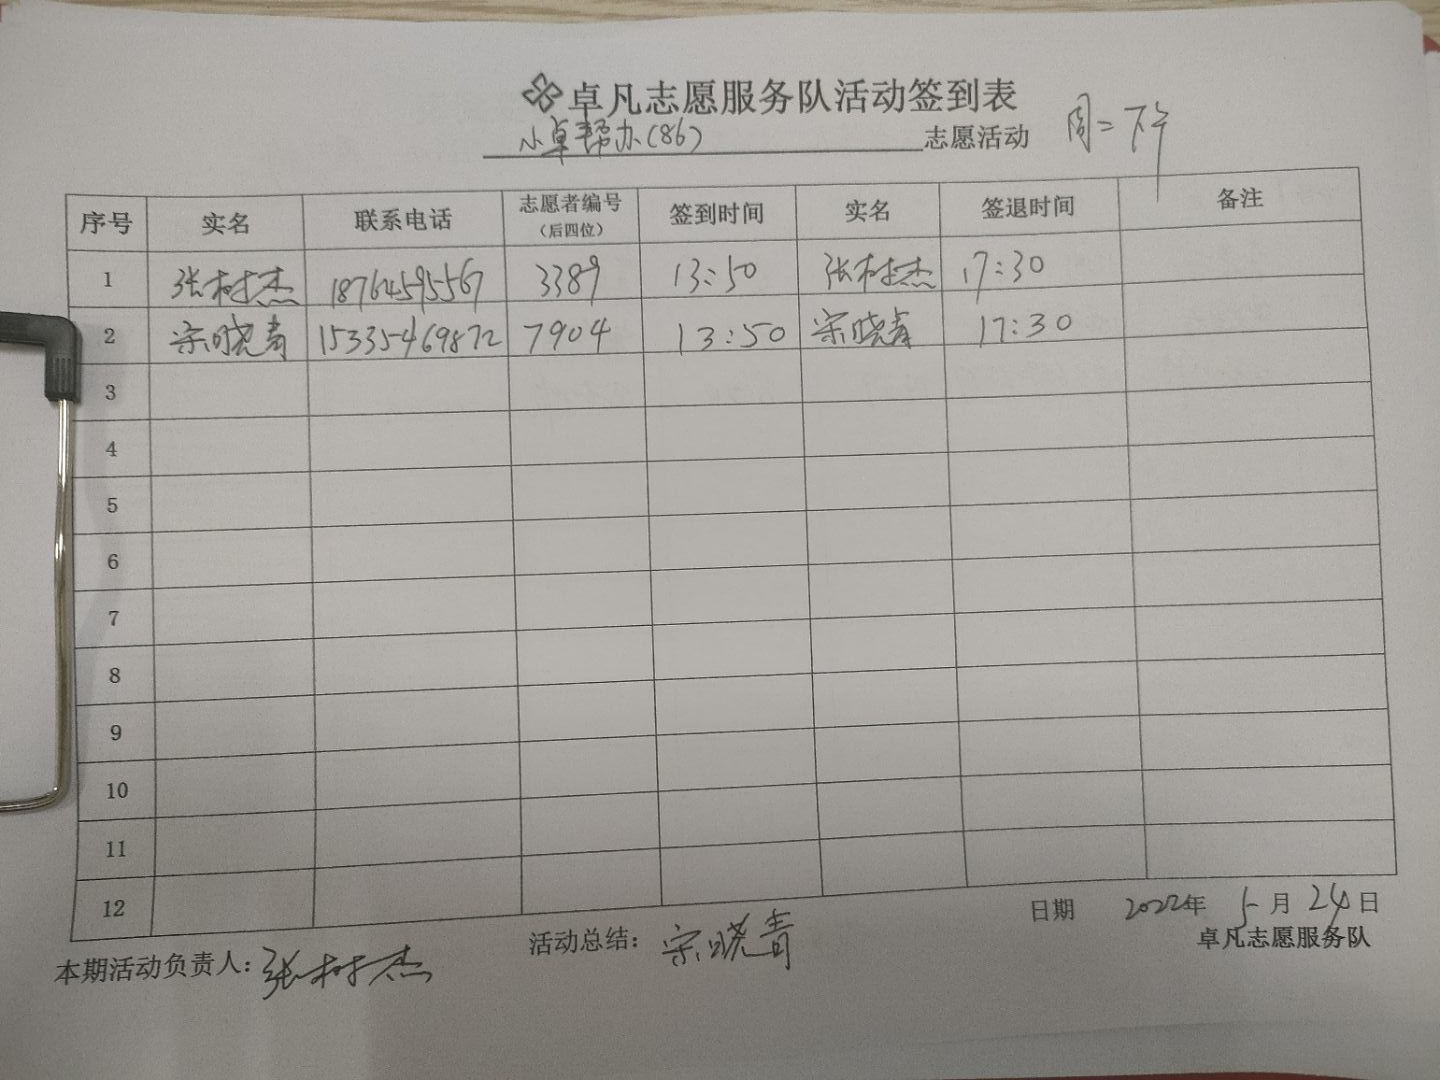 卓凡志愿服务队活动签到表
小卓帮办(86) 志愿活动 周二下午
序号 实名 联系电话 志愿者编号(后四位) 签到时间 实名 签退时间 备注
1 张树杰 18764595567 3389 13:50 张树杰 17:30
2 宗晓青 15335469872 7904 13:50 宗晓青 17:30
3
4
5
6
7
8
9
10
11
12
日期 2022年 5月 24日
本期活动负责人:张树杰 活动总结:宗晓青 卓凡志愿服务队